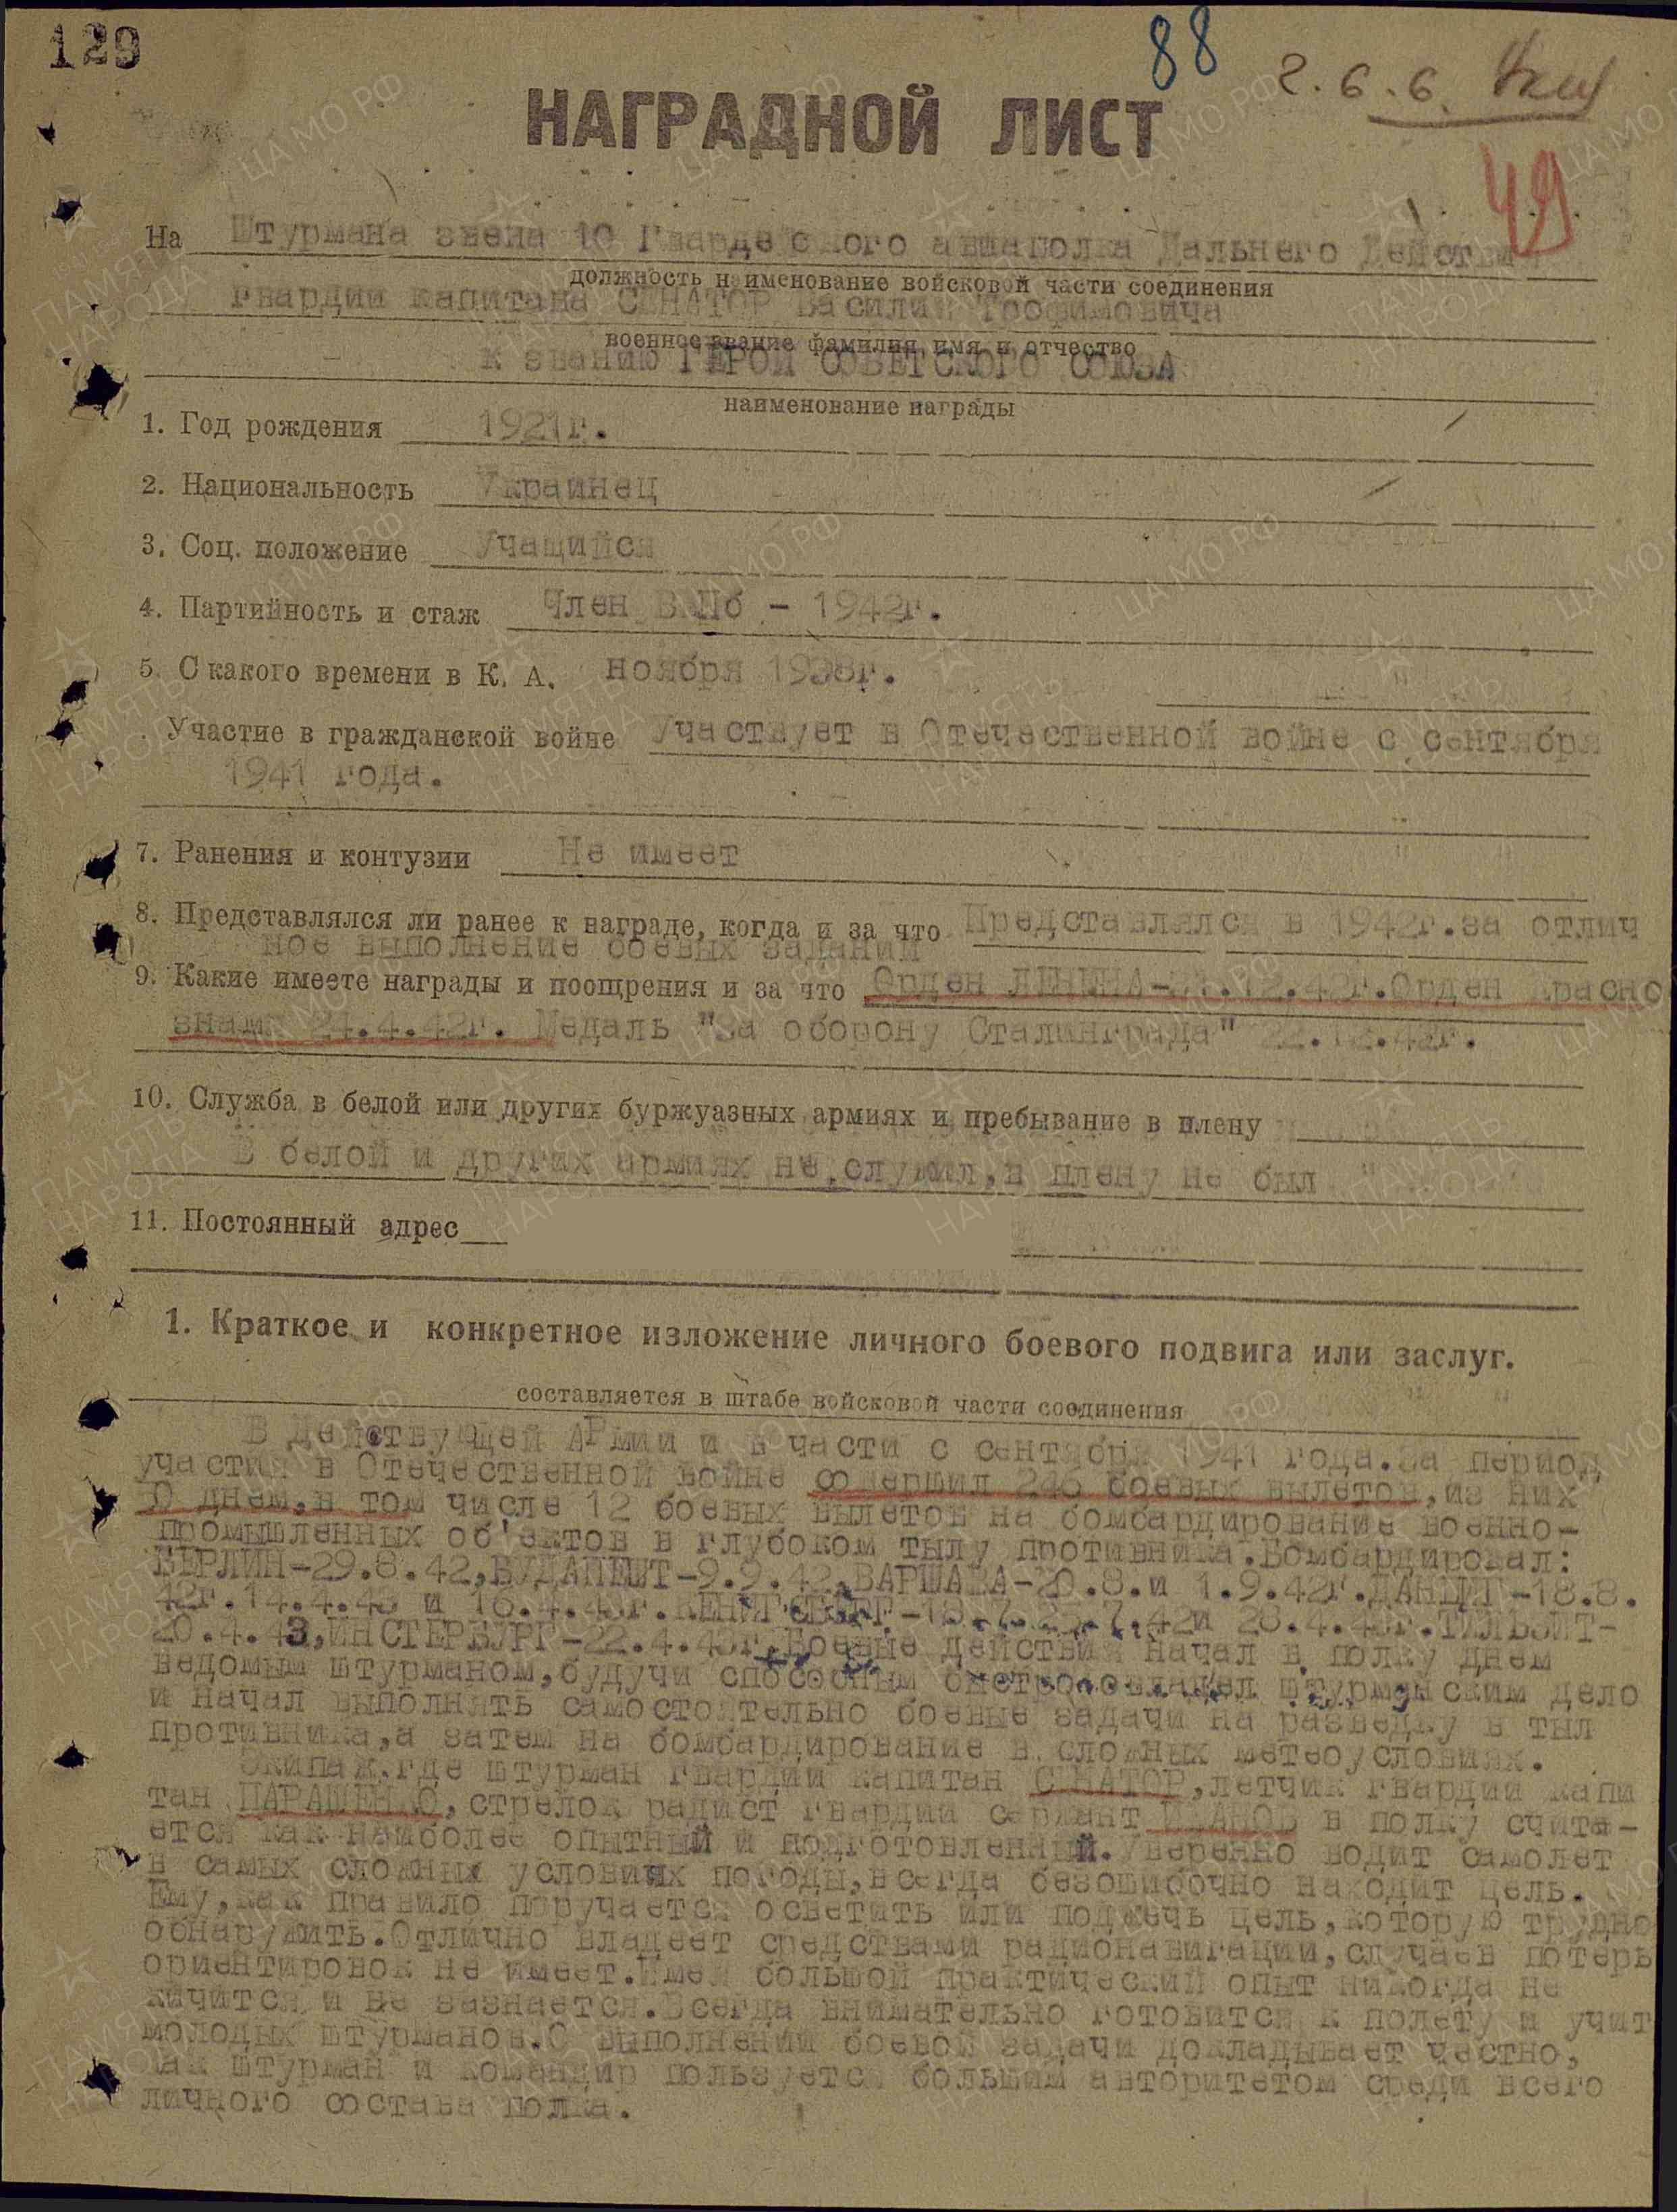 129
88
2.6.6.
49
НАГРАДНОЙ ЛИСТ
На Штурмана звена 10 Гвардейского авиаполка Дальнего Действия
должность наименование войсковой части соединения
гвардии капитана СЕНАТОР Василия Трофимовича
военное звание фамилия имя и отчество
к званию ГЕРОЙ СОВЕТСКОГО СОЮЗА
наименование награды
1. Год рождения 1921г.
2. Национальность Украинец
3. Соц. положение Учащийся
4. Партийность и стаж Член ВКПб - 1942г.
5. С какого времени в К. А. ноября 1938г.
Участие в гражданской войне Участвует в Отечественной войне с сентября
1941 года.
7. Ранения и контузии Не имеет
8. Представлялся ли ранее к награде, когда и за что Представлялся в 1942г.за отлич
ное выполнение боевых заданий
9. Какие имеете награды и поощрения и за что Орден ЛЕНИНА-31.12.42г.Орден Красно
знамя 24.4.42г. Медаль "За оборону Сталинграда" 22.12.42г.
10. Служба в белой или других буржуазных армиях и пребывание в плену
В белой и других армиях не служил,в плену не был
11. Постоянный адрес
1. Краткое и конкретное изложение личного боевого подвига или заслуг.
составляется в штабе войсковой части соединения
В Действующей АРмии и в части с сентября 1941 года.За период
участия в Отечественной войне совершил 246 боевых вылетов,из них
днем,в том числе 12 боевых вылетов на бомбардирование военно-
промышленных об'ектов в глубоком тылу противника.Бомбардировал:
БЕРЛИН-29.8.42,БУДАПЕШТ-9.9.42,ВАРШАВА-20.8.и 1.9.42г.ДАНЦИГ-18.8.
42г.14.4.43 и 16.4.43г.КЕНИГСБЕРГ-18.7.25.7.42и 28.4.43г.ТИЛЬЗИТ-
20.4.43,ИНСТЕРБУРГ-22.4.43г.Боевые действия начал в полку днем
ведомым штурманом,будучи способным быстро овладел штурманским дело
и начал выполнять самостоятельно боевые задачи на разведку в тыл
противника,а затем на бомбардирование в сложных метеоусловиях.
Экипаж,где штурман гвардии капитан СЕНАТОР,летчик гвардии капи
тан ПАРАЩЕНКО,стрелок радист гвардии сержант ИВАНОВ в полку счита-
ется как наиболее опытный и подготовленный.Уверенно водит самолет
в самых сложных условиях погоды,всегда безошибочно находит цель.
Ему,как правило поручается осветить или поджечь цель,которую трудно
обнаружить.Отлично владеет средствами радионавигации,случаев потерь
ориентировок не имеет.Имея большой практический опыт никогда не
кичится и не зазнается.Всегда внимательно готовится к полету и учит
молодых штурманов.О выполнении боевой задачи докладывает честно,
как штурман и командир пользуется большим авторитетом среди всего
личного состава полка.